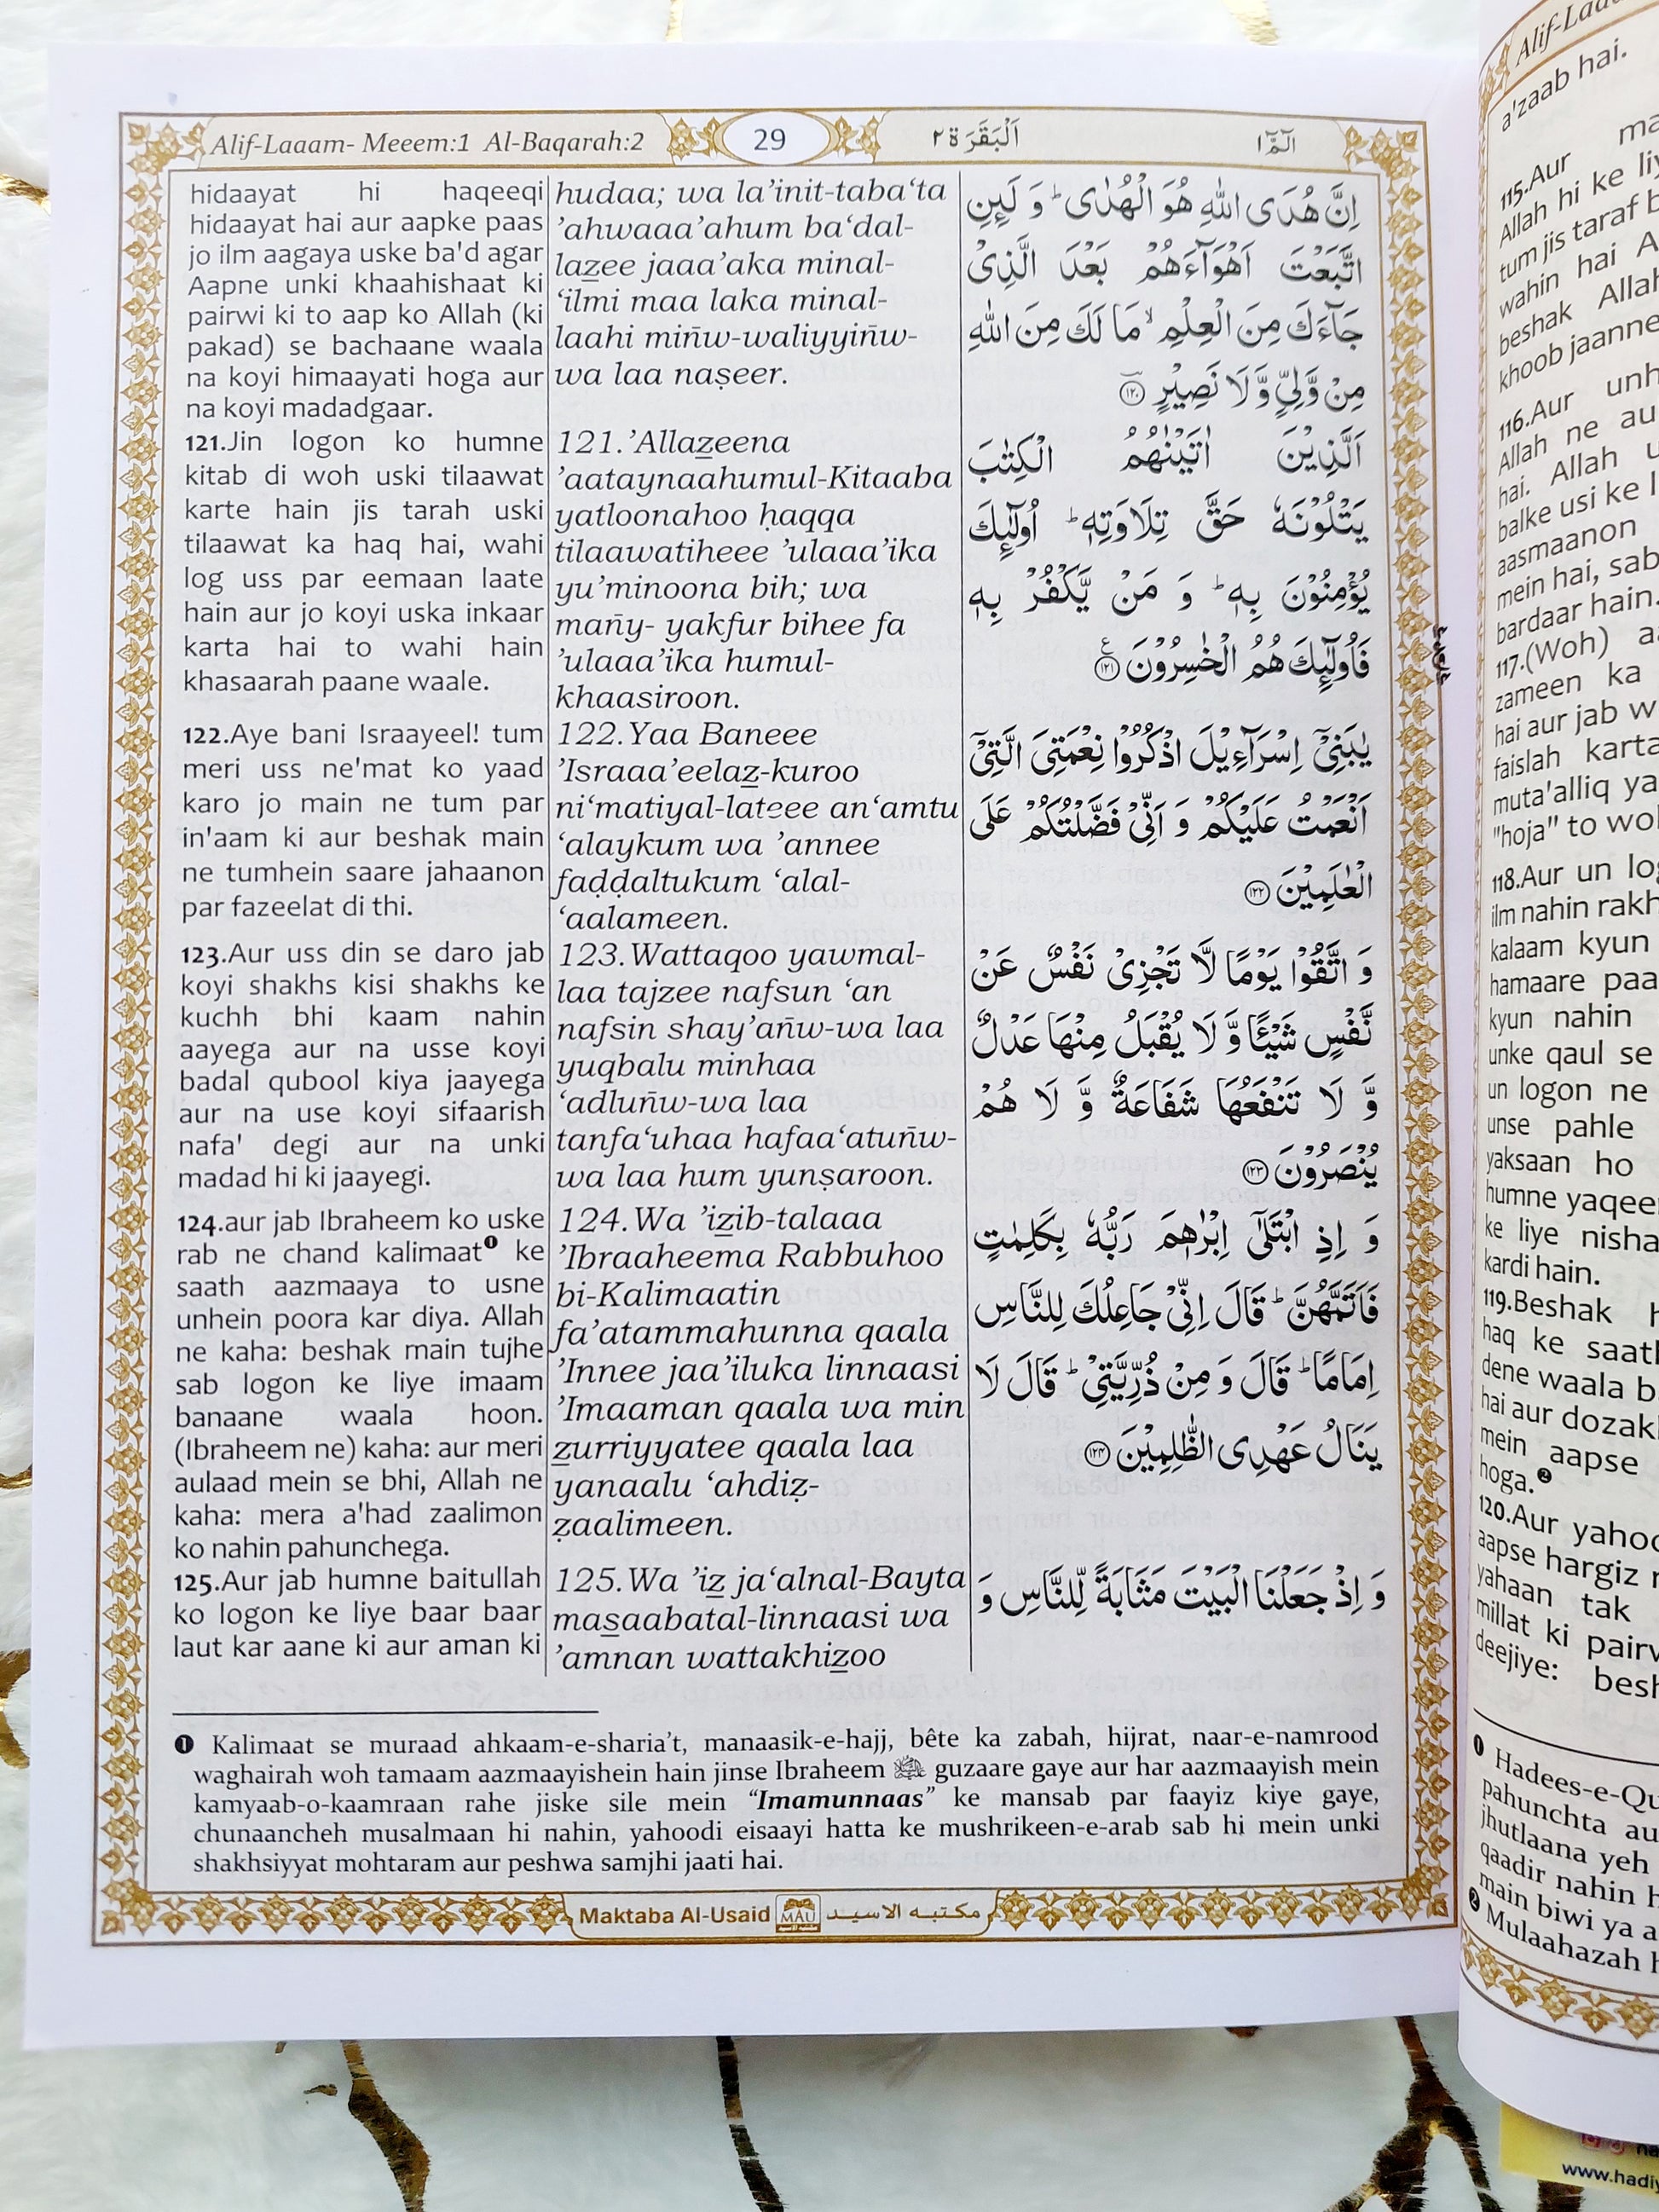 Alif-Laaam- Meeem:1 Al-Baqarah:2
29
اَلْبَقَرَة ٢
الٓمّٓ ١
hidaayat hi haqeeqi
hidaayat hai aur aapke paas
jo ilm aagaya uske ba'd agar
Aapne unki khaahishaat ki
pairwi ki to aap ko Allah (ki
pakad) se bachaane waala
na koyi himaayati hoga aur
na koyi madadgaar.
121.Jin logon ko humne
kitab di woh uski tilaawat
karte hain jis tarah uski
tilaawat ka haq hai, wahi
log uss par eemaan laate
hain aur jo koyi uska inkaar
karta hai to wahi hain
khasaarah paane waale.
122.Aye bani Israayeel! tum
meri uss ne'mat ko yaad
karo jo main ne tum par
in'aam ki aur beshak main
ne tumhein saare jahaanon
par fazeelat di thi.
123.Aur uss din se daro jab
koyi shakhs kisi shakhs ke
kuchh bhi kaam nahin
aayega aur na usse koyi
badal qubool kiya jaayega
aur na use koyi sifaarish
nafa' degi aur na unki
madad hi ki jaayegi.
124.aur jab Ibraheem ko uske
rab ne chand kalimaat❶ ke
saath aazmaaya to usne
unhein poora kar diya. Allah
ne kaha: beshak main tujhe
sab logon ke liye imaam
banaane waala hoon.
(Ibraheem ne) kaha: aur meri
aulaad mein se bhi, Allah ne
kaha: mera a'had zaalimon
ko nahin pahunchega.
125.Aur jab humne baitullah
ko logon ke liye baar baar
laut kar aane ki aur aman ki
hudaa; wa la’init-taba‘ta
’ahwaaa’ahum ba‘dal-
lazee jaaa’aka minal-
‘ilmi maa laka minal-
laahi miñw-waliyyiñw-
wa laa naṣeer.
121.’Allazeena
’aataynaahumul-Kitaaba
yatloonahoo ḥaqqa
tilaawatiheee ’ulaaa’ika
yu’minoona bih; wa
mañy- yakfur bihee fa
’ulaaa’ika humul-
khaasiroon.
122.Yaa Baneee
’Israaa’eelaz-kuroo
ni‘matiyal-lateee an‘amtu
‘alaykum wa ’annee
faḍḍaltukum ‘alal-
‘aalameen.
123.Wattaqoo yawmal-
laa tajzee nafsun ‘an
nafsin shay’añw-wa laa
yuqbalu minhaa
‘adluñw-wa laa
tanfa‘uhaa hafaa‘atuñw-
wa laa hum yunṣaroon.
124.Wa ’izib-talaaa
’Ibraaheema Rabbuhoo
bi-Kalimaatin
fa’atammahunna qaala
’Innee jaa’iluka linnaasi
’Imaaman qaala wa min
zurriyyatee qaala laa
yanaalu ‘ahdiẓ-
ẓaalimeen.
125.Wa ’iz ja‘alnal-Bayta
masaabatal-linnaasi wa
’amnan wattakhizoo
اِنَّ هُدَى اللّٰهِ هُوَ الْهُدٰى ؕ وَ لَىِٕنِ
اتَّبَعْتَ اَهْوَآءَهُمْ بَعْدَ الَّذِیْ
جَآءَكَ مِنَ الْعِلْمِ ۙ مَا لَكَ مِنَ اللّٰهِ
مِنْ وَّلِیٍّ وَّ لَا نَصِیْرٍ ﴿۱۲۰﴾
اَلَّذِیْنَ اٰتَیْنٰهُمُ الْكِتٰبَ
یَتْلُوْنَهٗ حَقَّ تِلَاوَتِهٖ ؕ اُولٰٓىِٕكَ
یُؤْمِنُوْنَ بِهٖ ؕ وَ مَنْ یَّكْفُرْ بِهٖ
فَاُولٰٓىِٕكَ هُمُ الْخٰسِرُوْنَ ﴿۱۲۱﴾ ع
یٰبَنِیْۤ اِسْرَآءِیْلَ اذْكُرُوْا نِعْمَتِیَ الَّتِیْۤ
اَنْعَمْتُ عَلَیْكُمْ وَ اَنِّیْ فَضَّلْتُكُمْ عَلَى
الْعٰلَمِیْنَ ﴿۱۲۲﴾
وَ اتَّقُوْا یَوْمًا لَّا تَجْزِیْ نَفْسٌ عَنْ
نَّفْسٍ شَیْـًٔا وَّ لَا یُقْبَلُ مِنْهَا عَدْلٌ
وَّ لَا تَنْفَعُهَا شَفَاعَةٌ وَّ لَا هُمْ
یُنْصَرُوْنَ ﴿۱۲۳﴾
وَ اِذِ ابْتَلٰۤى اِبْرٰهٖمَ رَبُّهٗ بِكَلِمٰتٍ
فَاَتَمَّهُنَّ ؕ قَالَ اِنِّیْ جَاعِلُكَ لِلنَّاسِ
اِمَامًا ؕ قَالَ وَ مِنْ ذُرِّیَّتِیْ ؕ قَالَ لَا
یَنَالُ عَهْدِی الظّٰلِمِیْنَ ﴿۱۲۴﴾
وَ اِذْ جَعَلْنَا الْبَیْتَ مَثَابَةً لِّلنَّاسِ وَ
❶ Kalimaat se muraad ahkaam-e-sharia’t, manaasik-e-hajj, bête ka zabah, hijrat, naar-e-namrood
waghairah woh tamaam aazmaayishein hain jinse Ibraheem ﷷ guzaare gaye aur har aazmaayish mein
kamyaab-o-kaamraan rahe jiske sile mein “Imamunnaas” ke mansab par faayiz kiye gaye,
chunaancheh musalmaan hi nahin, yahoodi eisaayi hatta ke mushrikeen-e-arab sab hi mein unki
shakhsiyyat mohtaram aur peshwa samjhi jaati hai.
Maktaba Al-Usaid MAU مكتبه الاسيد
Alif-
a'zaab hai.
115.Aur
Allah hi ke
tum jis taraf
wahin hai
beshak Allah
khoob jaanne
116.Aur
Allah ne
hai. Allah
balke usi ke
aasmaanon
mein hai, sab
bardaar hain.
117.(Woh)
zameen ka
hai aur jab
faislah karta
muta'alliq
"hoja" to
118.Aur un
ilm nahin
kalaam kyun
hamaare
kyun nahin
unke qaul se
un logon ne
unse pahle
yaksaan ho
humne
ke liye
kardi hain.
119.Beshak
haq ke
dene waala
hai aur
mein aapse
hoga.❷
120.Aur
aapse hargiz
yahaan tak
millat ki
deejiye:
❶ Hadees-e-
pahunchta
jhutlaana yeh
qaadir nahin
main biwi ya
❷ Mulaahazah